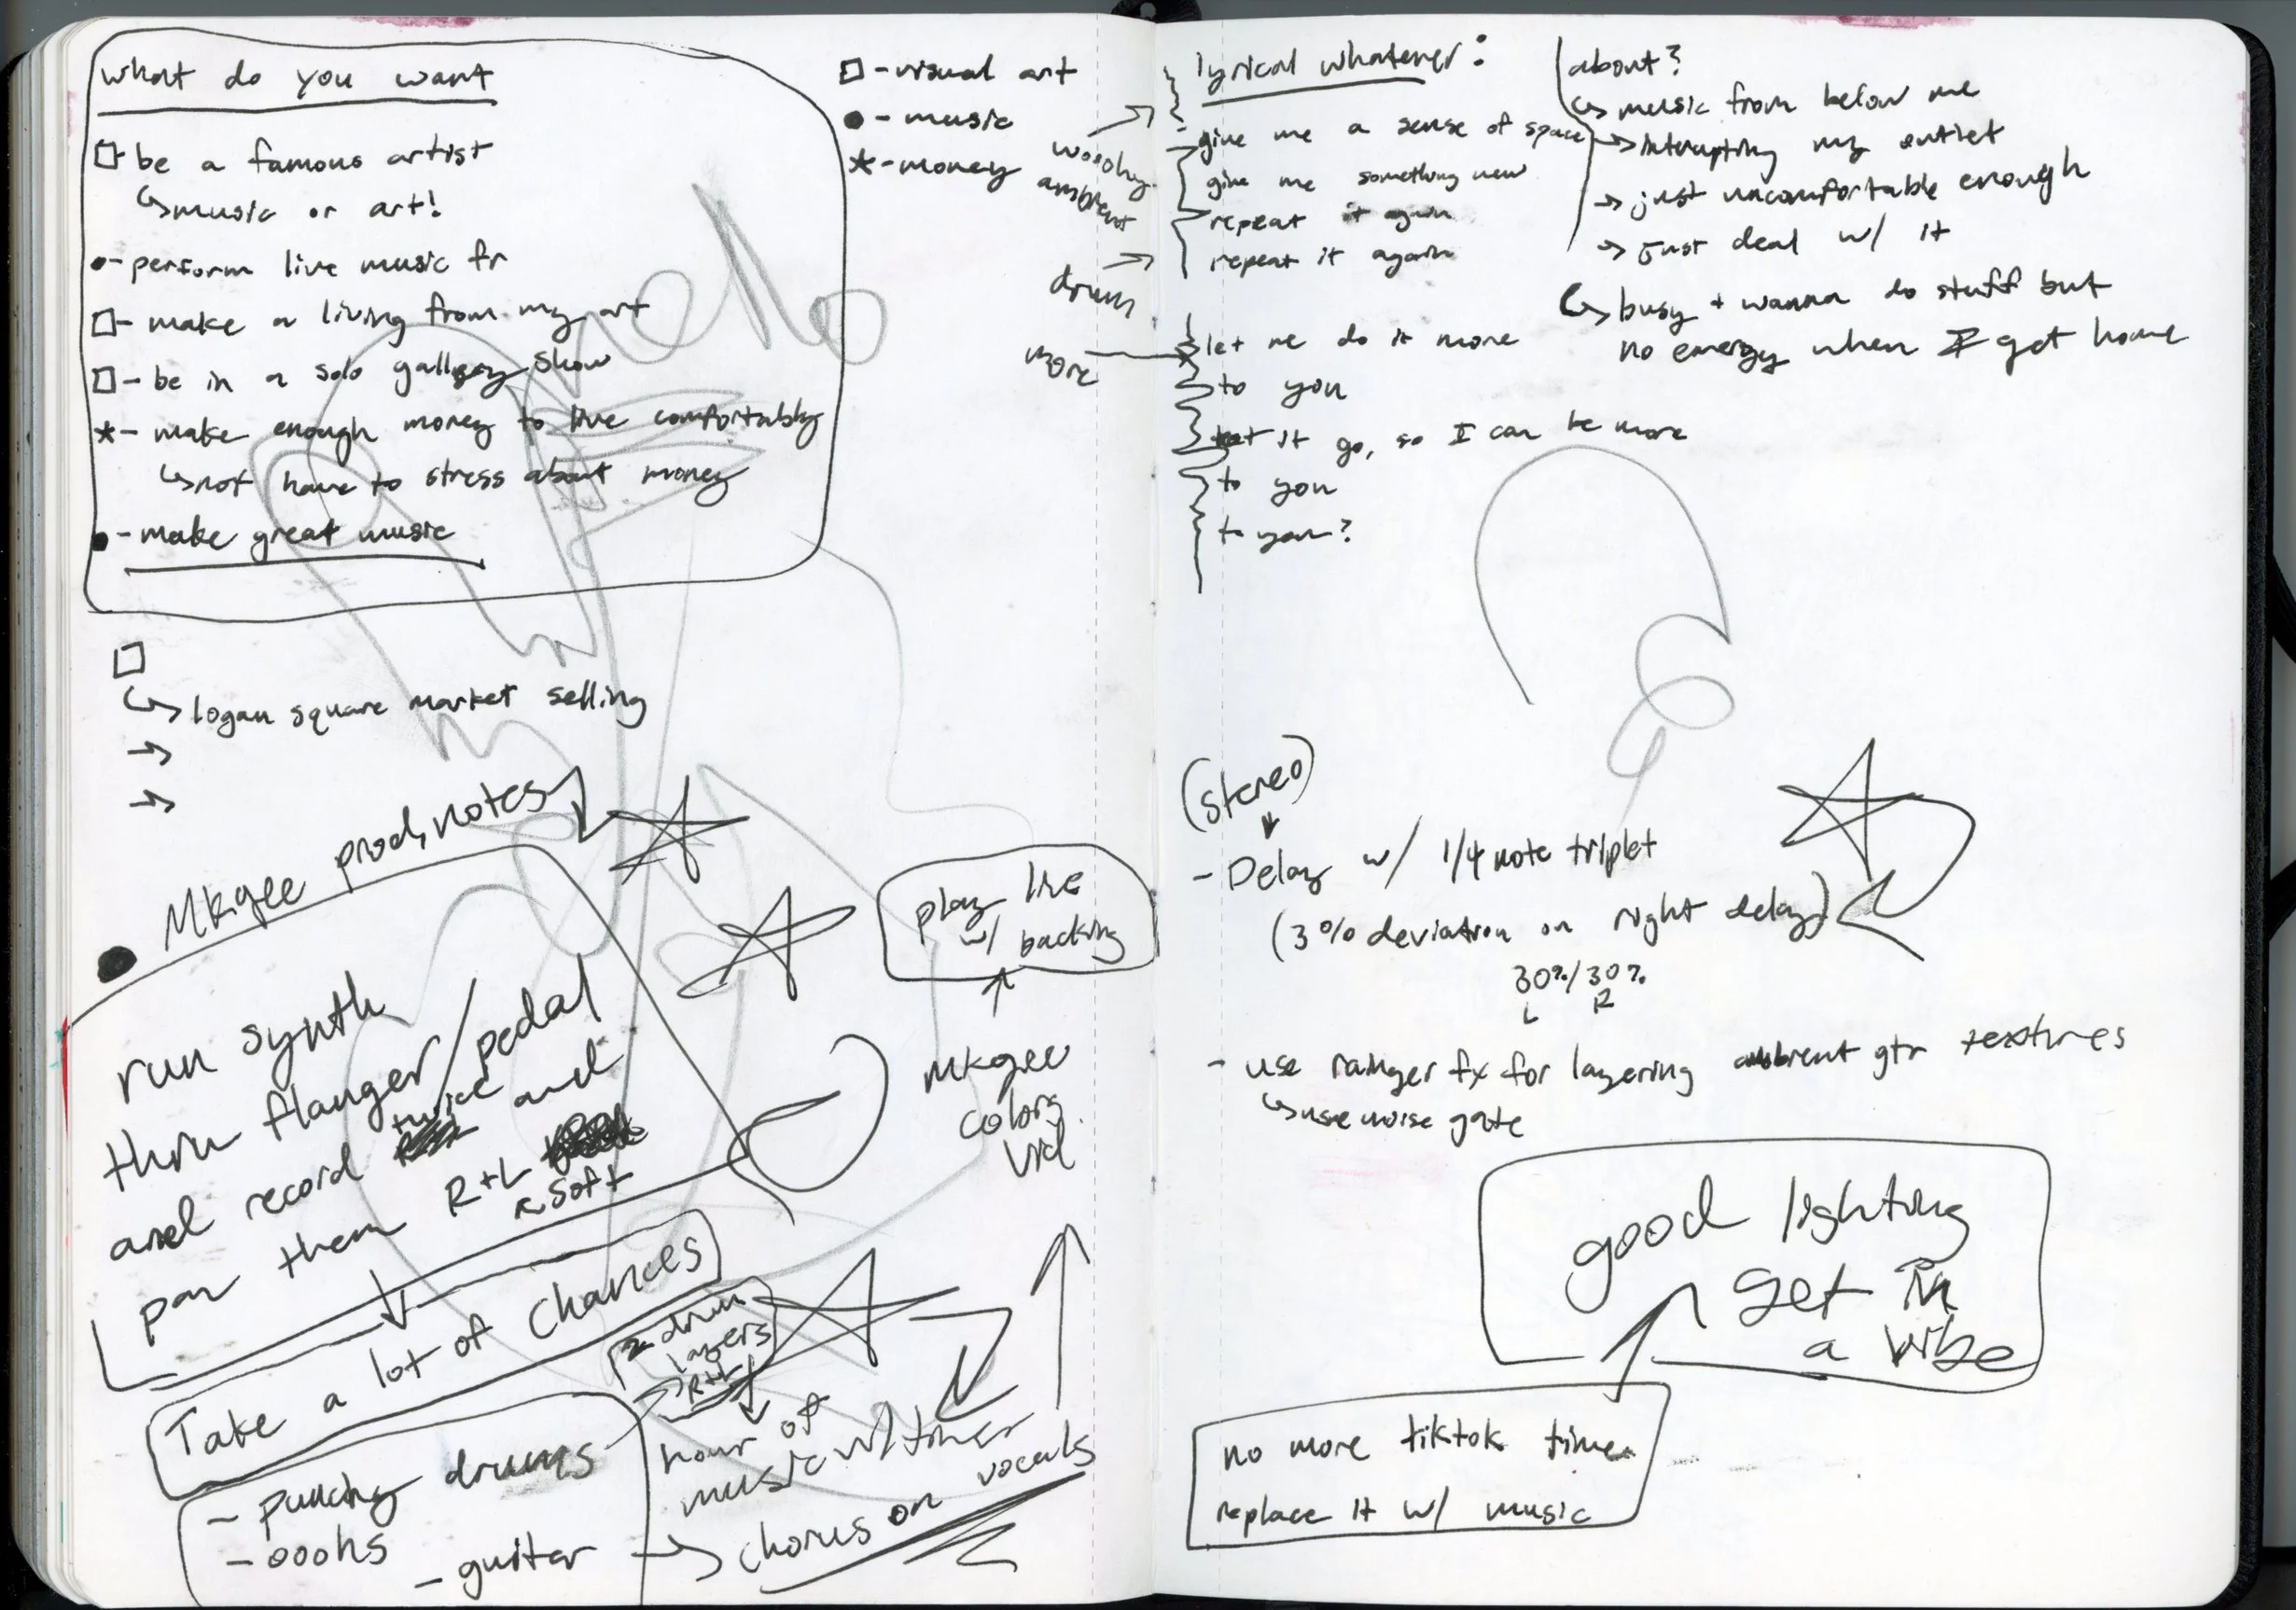 what do you want
□ be a famous artist
↳ music or art!
●- perform live music fr
□- make a living from my art
□- be in a solo gallery show
*- make enough money to live comfortably
↳ not have to stress about money
●- make great music
□- visual art
●- music
*- money
□
↳ logan square market selling
→
→
Mkgee prod. notes
● run synth
thru flanger/pedal
and record twice and
pan them R+L
soft
Take a lot of chances
- punchy drums
- ooohs
- guitar
2 drum
layers
R+L
hour of
music w/ timer
→ chorus on vocals
play live
w/ backing
Mkgee
colors
vid
lyrical whatever:
- give me a sense of space
give me something new
repeat it again
repeat it again
let me do it more
to you
let it go, so I can be more
to you
to you?
wooshy
ambient
drum
more
about?
↳ music from below me
→ interupting my outlet
→ just uncomfortable enough
→ just deal w/ it
↳ busy + wanna do stuff but
no energy when I get home
(stereo)
- Delay w/ 1/4 note triplet
(3% deviation on right delay)
30%/30%
L R
- use rainger fx for layering ambient gtr textures
↳ use noise gate
good lighting
get in
a vibe
no more tiktok time
replace it w/ music